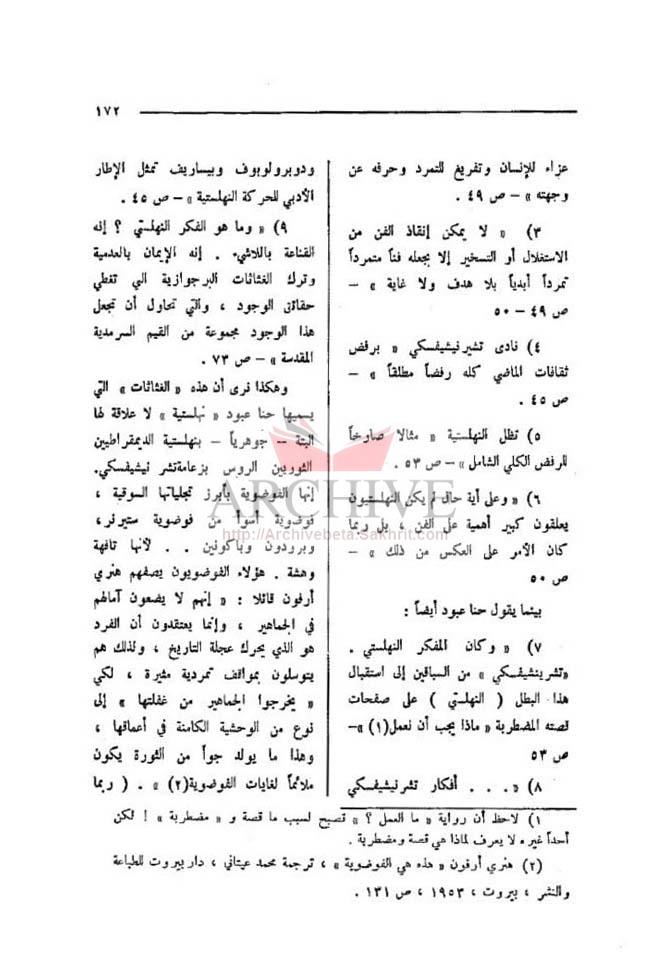 ١٧٢
عزاء للإنسان وتفريغ للتمرد وحرفه عن
وجهته » – ص ٤٩ .
٣) « لا يمكن إنقاذ الفن من
الاستغلال أو التسخير إلا بجعله فناً متمرداً
تمرداً أبدياً بلا هدف ولا غاية » –
ص ٤٩ – ٥٠
٤) نادى تشيرنيشيفسكي « برفض
ثقافات الماضي كله رفضاً مطلقاً » –
ص ٤٥ .
٥) تظل النهلستية « مثالا صارخاً
للرفض الكلي الشامل » – ص ٥٣ .
٦) « وعلى أية حال لم يكن النهلستيون
يعلقون كبير أهمية على الفن ، بل ربما
كان الأمر على العكس من ذلك » –
ص ٥٠
بينما يقول حنا عبود أيضاً :
٧) « وكان المفكر النهلستي .
«تشرينشيفسكي » من السباقين إلى استقبال
هذا البطل ( النهلستي ) على صفحات
قصته المضطربة « ماذا يجب أن نعمل(١) »–
ص ٥٣
٨) « . . . أفكار تشرنيشيفسكي
ودوبرولوبوف وبيساريف تمثل الإطار
الأدبي للحركة النهلستية » – ص ٤٥ .
٩) « وما هو الفكر النهلستي ؟ إنه
القناعة باللاشيء . إنه الإيمان بالعدمية
وترك الغثاثات البرجوازية التي تغطي
حقائق الوجود ، والتي تحاول أن تجعل
هذا الوجود مجموعة من القيم السرمدية
المقدسة » – ص ٧٣ .
وهكذا نرى أن هذه « الغثاثات » التي
يسميها حنا عبود « نهلستية » لا علاقة لها
البتة – جوهرياً – بنهلستية الديمقراطيين
الثوريين الروس بزعامة تشرنيشيفسكي.
إنها الفوضوية بأبرز تجلياتها السوقية ،
فوضوية أسوأ من فوضوية ستيرنر،
وبرودون وباكونين . . لأنها تافهة
وهشة . هؤلاء الفوضويون يصفهم هنري
أرفون قائلا : « إنهم لا يضعون آمالهم
في الجماهير ، وإنما يعتقدون أن الفرد
هو الذي يحرك عجلة التاريخ ، ولذلك هم
يتوسلون بمواقف تمردية مثيرة ، لكي
« يخرجوا الجماهير من غفلتها » إلى
نوع من الوحشية الكامنة في أعماقها ،
وهذا ما يولد جواً من الثورة يكون
ملائماً لغايات الفوضوية(٢) » . ( ربما
١) لاحظ أن رواية « ما العمل ؟ » تصبح لسبب ما قصة و « مضطربة » ! لكن
أحداً غيره لا يعرف لماذا هي قصة ومضطربة .
(٢) هنري أرفون « هذه هي الفوضوية » ، ترجمة محمد عيتاني ، دار بيروت للطباعة
والنشر ، بيروت ، ١٩٥٣ ، ص ١٣١ .
ARCHIVE
http://Archivebeta.Sakhrit.com